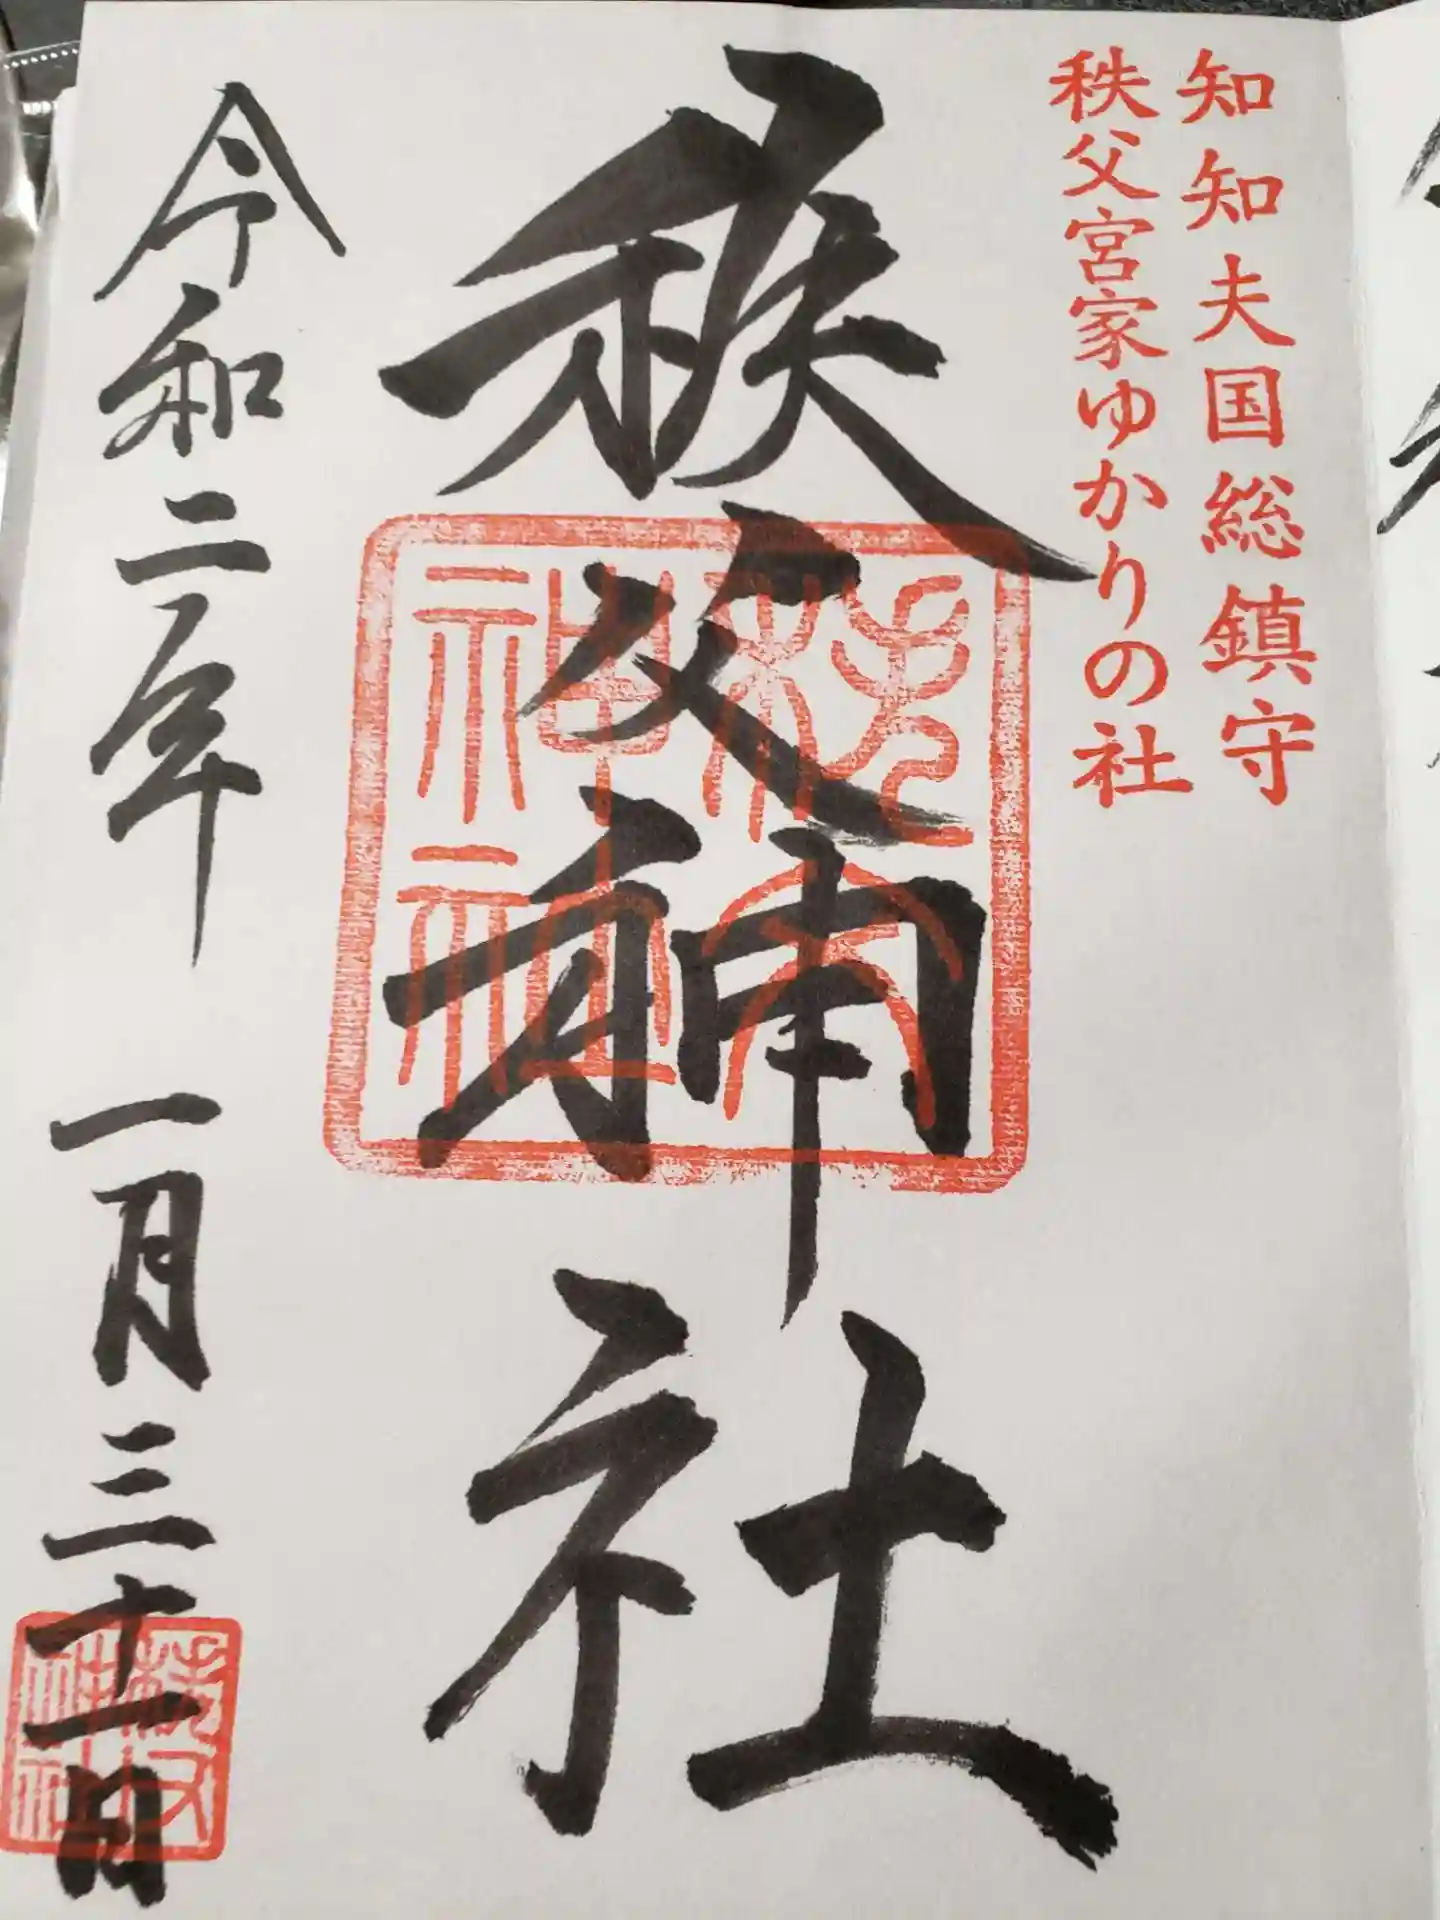 知知夫国総鎮守
秩父宮家ゆかりの社
秩父神社
秩父
神社
令和二年 一月三十一日
秩父
神社